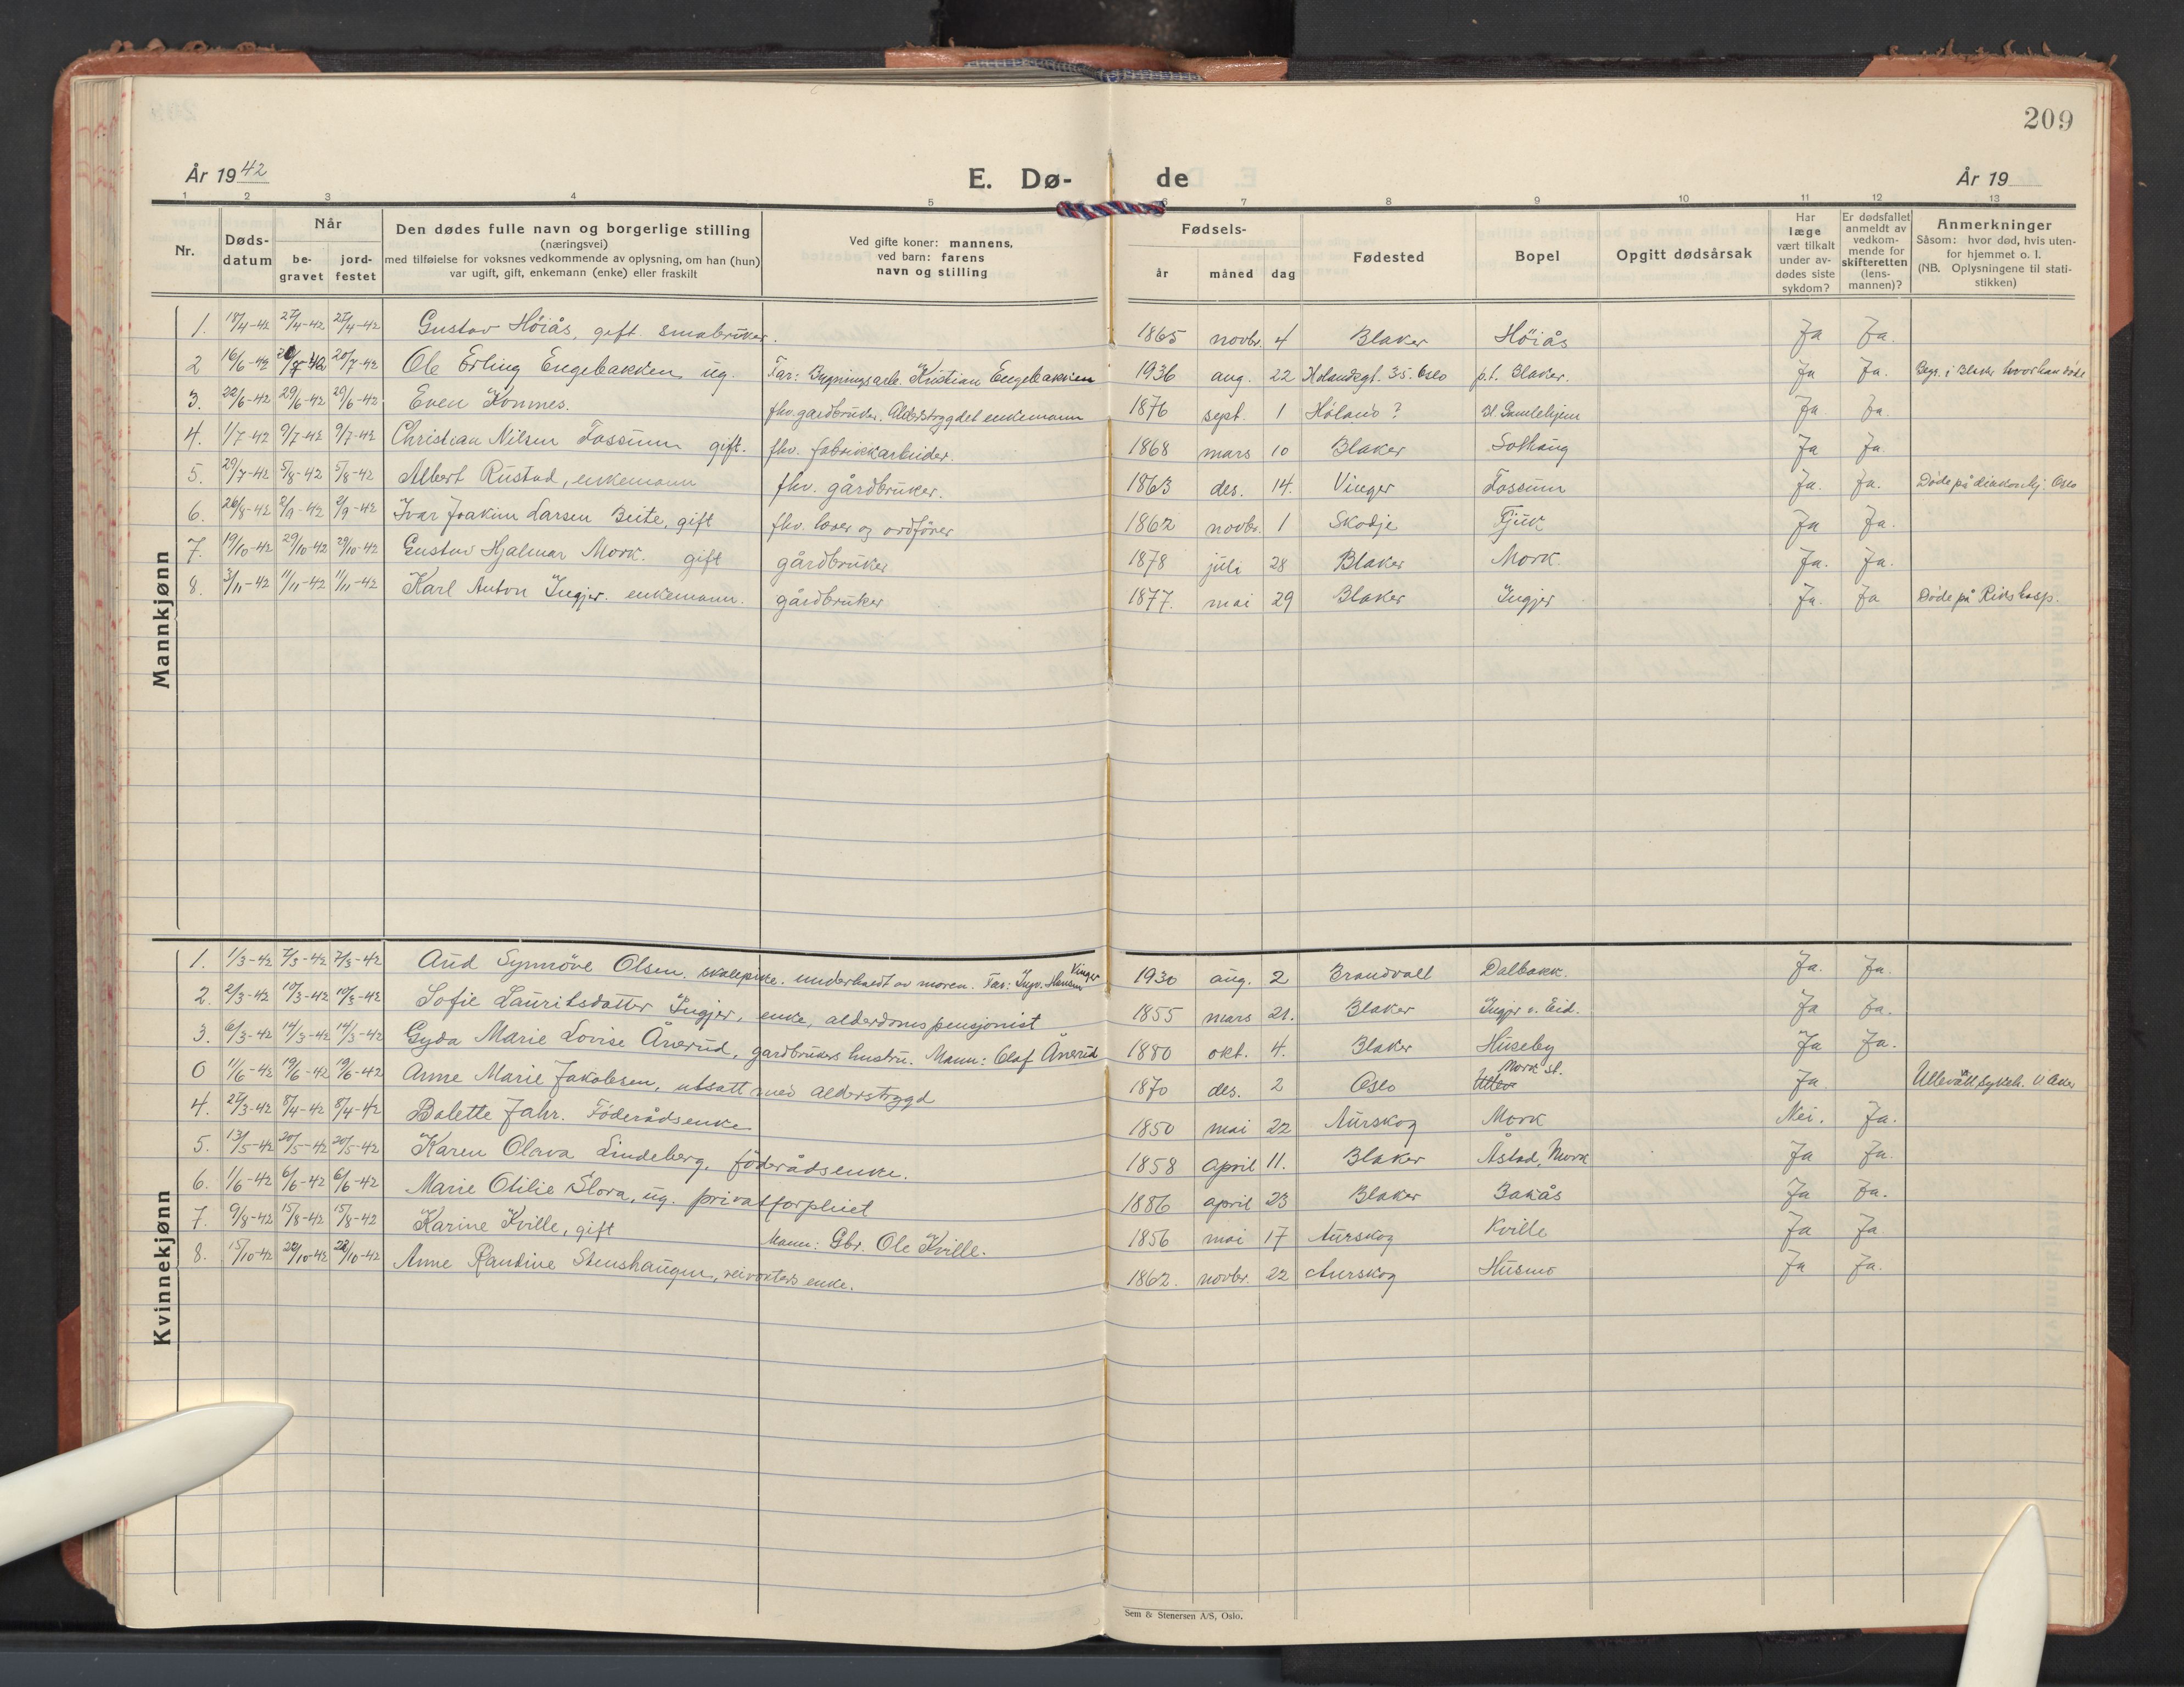 209
År 1942
E. Dø-
de
År 19
1 2 3 4 5 6 7 8 9 10 11 12 13
Nr.
Døds-
datum
Når
be-
gravet
jord-
festet
Den dødes fulle navn og borgerlige stilling
(næringsvei)
med tilføielse for voksnes vedkommende av oplysning, om han (hun)
var ugift, gift, enkemann (enke) eller fraskilt
Ved gifte koner: mannens,
ved barn: farens
navn og stilling
Fødsels-
år
måned
dag
Fødested
Bopel
Opgitt dødsårsak
Har
læge
vært tilkalt
under av-
dødes siste
sykdom?
Er dødsfallet
anmeldt av
vedkom-
mende for
skifteretten
(lens-
mannen)?
Anmerkninger
Såsom: hvor død, hvis uten-
for hjemmet o. l.
(NB. Oplysningene til stati-
stikken)
Mannkjønn
1. 18/4-42 27/4-42 27/4-42 Gustav Höiås, gift. småbruker. 1865 novbr. 4 Blaker Höiås Ja Ja.
2 16/6-42 20/7-42 20/7-42 Ole Erling Engebakken ug. Far: Bygningsarb. Kristian Engebakken 1936 aug. 22 35. Oslo p.t. Blaker. Ja Ja. Begr. i Blaker hvor han døde
3. 22/6-42 29/6-42 29/6-42 Even Konnes. fhv. gardbruker. Alderstrygdet enkemann 1876 sept. 1 Höland? Bl. Gamlehjem Ja Ja.
4. 1/7-42 9/7-42 9/7-42 Christian Nilsen Fossum gift. fhv. fabrikkarbeider. 1868 mars 10 Blaker Solhaug Ja Ja.
5. 29/7-42 5/8-42 5/8-42 Albert Rustad, enkemann fhv. gårdbruker. 1863 des. 14. Vinger Fossum Ja. Ja. Døde på diakonhj. Oslo
6. 26/8-42 2/9-42 2/9-42 Ivar Joakim Larsen Beite, gift fhv. lærer og ordfører 1862 novbr. 1 Skodje Fjuk Ja Ja.
7. 19/10-42 29/10-42 29/10-42 Gustav Hjalmar Mork. gift gårdbruker 1878 juli 28 Blaker Mork. Ja. Ja.
8. 3/11-42 11/11-42 11/11-42 Karl Anton Ingjer. enkemann. gårdbruker 1877. mai 29 Blaker Ingjer Ja. Ja Døde på Rikshosp.
Kvinnekjønn
1. 1/3-42 7/3-42 7/3-42 Aud Synnöve Olsen. skolepike. underholdt av moren. Far: Ingv. Hansen Vinger 1930 aug. 2 Brandvall Dalbakk. Ja. Ja.
2. 2/3-42 10/3-42 10/3-42 Sofie Lauritsdatter Ingjer, enke, alderdomspensjonist 1855 mars 21. Blaker Ingjer v. Eid. Ja Ja.
3. 6/3-42 14/3-42 14/3-42 Gyda Marie Lovise Ånerud, gardbrukers hustru. Mann: Olaf Ånerud 1880 okt. 4. Blaker Huseby Ja Ja.
0 11/6-42 19/6-42 19/6-42 Anne Marie Jakobsen, utsatt med alderstrygd 1870 des. 2 Oslo Mork st. Ja Ullevåll sykeh. V. Aker
4. 29/3-42 8/4-42 8/4-42 Bolette Jahr. Föderådsenke 1850 mai 22 Aurskog Mork Nei. Ja.
5. 13/5-42 20/5-42 20/5-42 Karen Olava Lindeberg, föderådsenke. 1858 april 11. Blaker Åstad, Mork Ja Ja.
6. 1/6-42 6/6-42 6/6-42 Marie Otilie Slora, ug. privatforpleiet 1886 april 23 Blaker Bakås Ja Ja.
7. 9/8-42 15/8-42 15/8-42 Karine Kville, gift Mann: Gbr. Ole Kville. 1856 mai 17 Aurskog Kville Ja Ja
8. 15/10-42 22/10-42 22/10-42 Anne Randine Stenshaugen, veivokters enke. 1862. novbr. 22 Aurskog Husmo Ja Ja.
Sem & Stenersen A/S, Oslo.